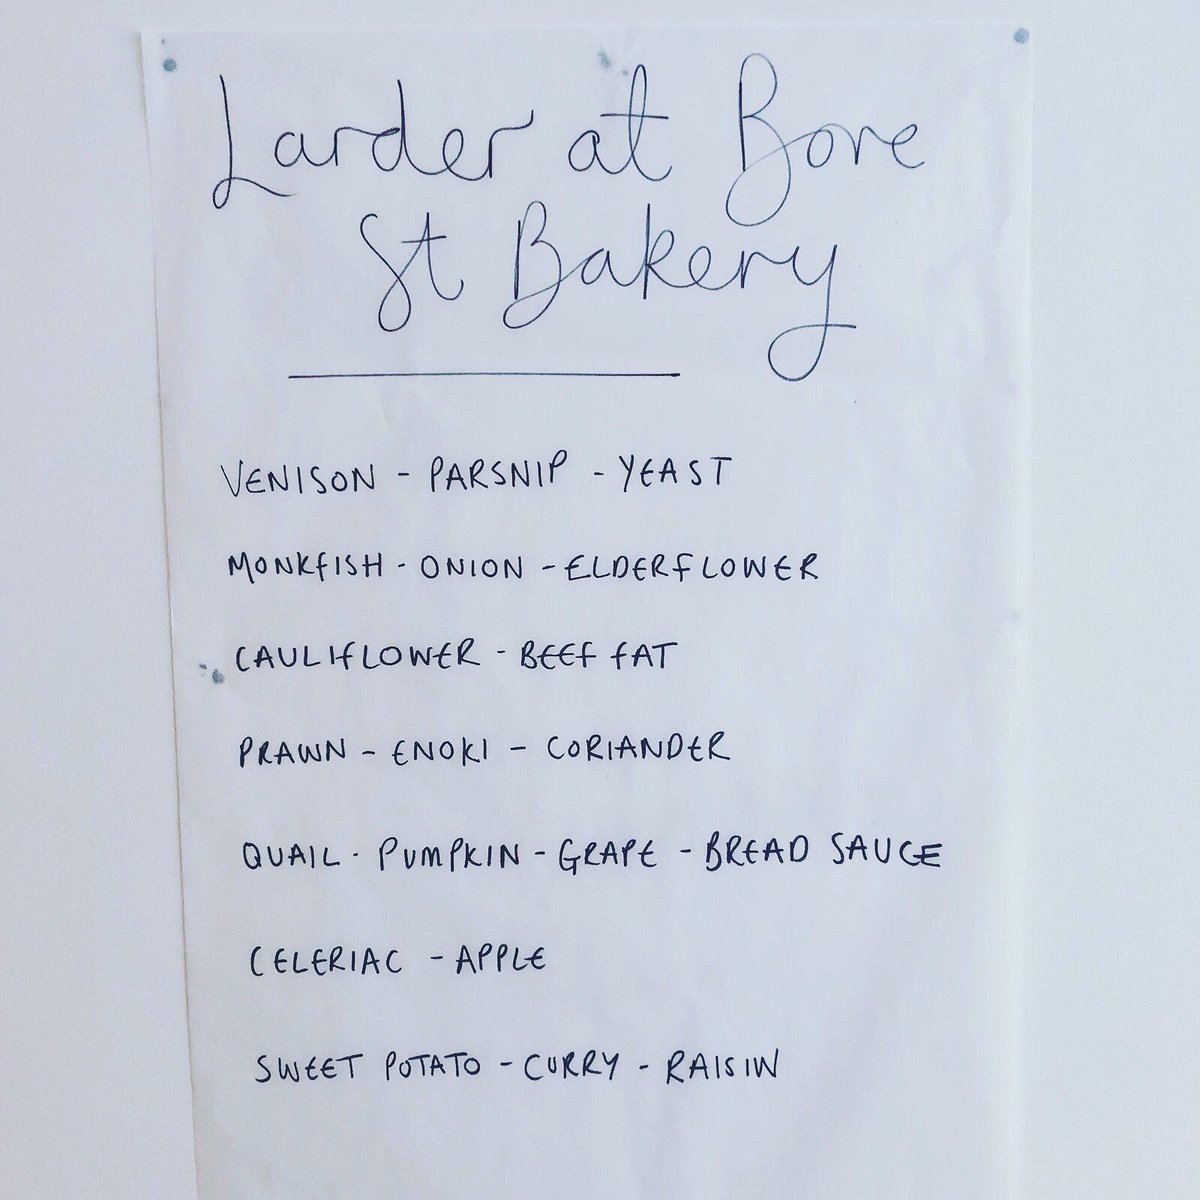 Larder at Bore
St Bakery
VENISON - PARSNIP - YEAST
MONKFISH - ONION - ELDERFLOWER
CAULIFLOWER - BEEF FAT
PRAWN - ENOKI - CORIANDER
QUAIL - PUMPKIN - GRAPE - BREAD SAUCE
CELERIAC - APPLE
SWEET POTATO - CURRY - RAISIN